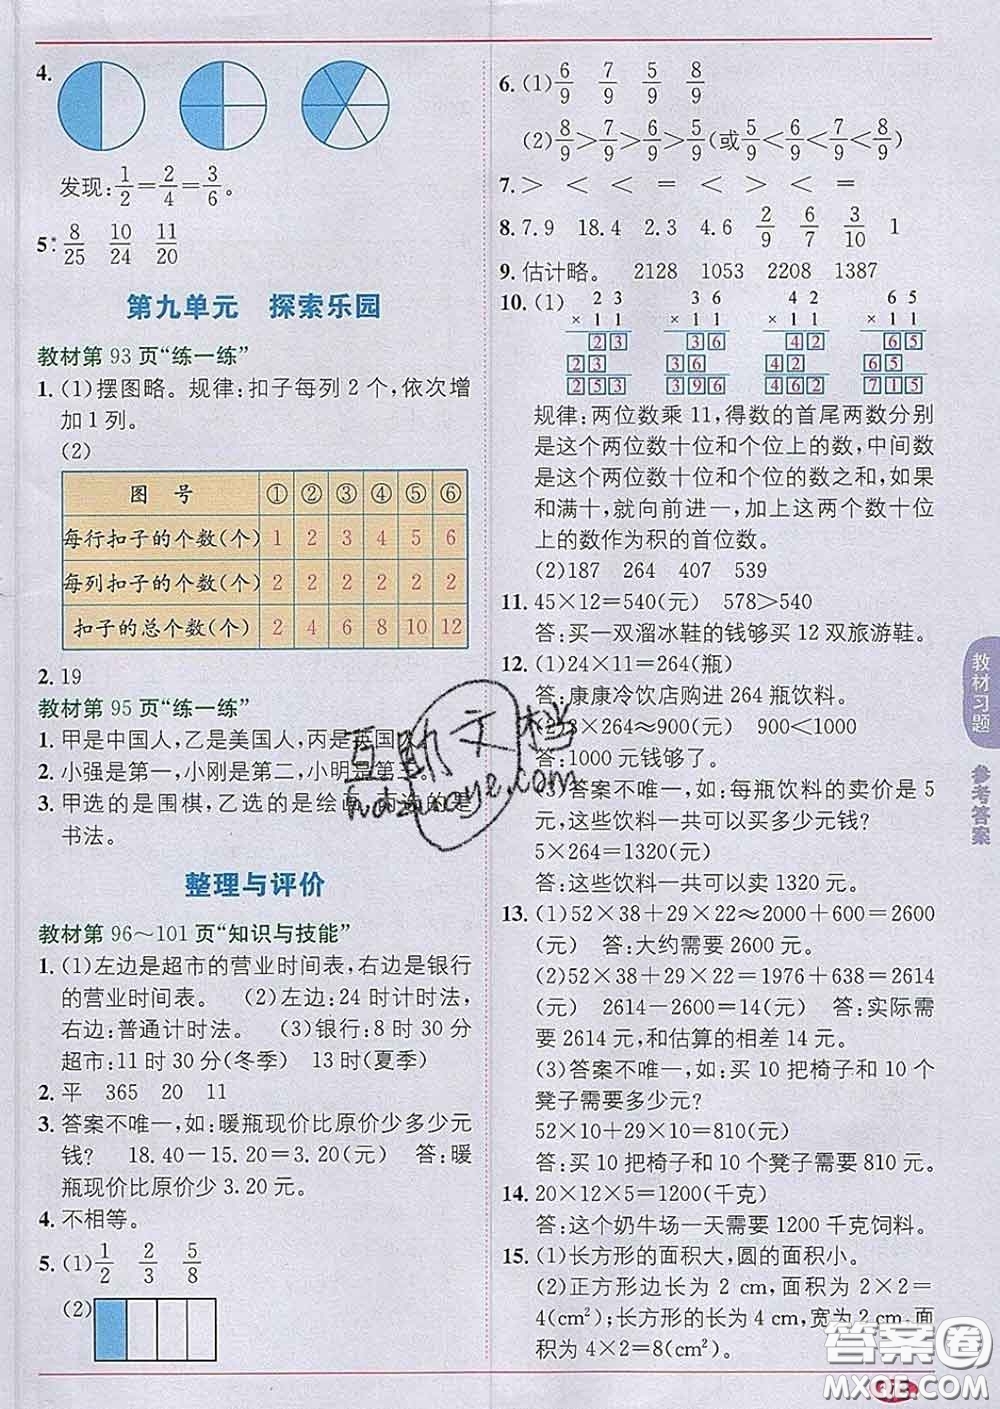 4.
发现:1/2=2/4=3/6。
5. 8/25 10/24 11/20
第九单元 探索乐园
教材第 93 页“练一练”
1. (1)摆图略。规律:扣子每列 2 个,依次增
加 1 列。
(2)
图 号 ① ② ③ ④ ⑤ ⑥
每行扣子的个数(个) 1 2 3 4 5 6
每列扣子的个数(个) 2 2 2 2 2 2
扣子的总个数(个) 2 4 6 8 10 12
2. 19
教材第 95 页“练一练”
1. 甲是中国人,乙是美国人,丙是英国人。
2. 小强是第一,小刚是第二,小明是第三。
3. 甲选的是围棋,乙选的是绘画,丙选的是
书法。
整理与评价
教材第 96～101 页“知识与技能”
1. (1)左边是超市的营业时间表,右边是银行
的营业时间表。 (2)左边:24 时计时法,
右边:普通计时法。 (3)银行:8 时 30 分
超市:11 时 30 分(冬季) 13 时(夏季)
2. 平 365 20 11
3. 答案不唯一,如:暖瓶现价比原价少多少元
钱? 18.40－15.20＝3.20(元) 答:暖
瓶现价比原价少 3.20 元。
4. 不相等。
5. (1)1/2 2/3 5/8
(2)
6. (1)6/9 7/9 5/9 8/9
(2)8/9>7/9>6/9>5/9(或5/9<6/9<7/9<8/9)
7. > < < = < < < =
8. 7.9 18.4 2.3 4.6 2/9 6/7 3/10 1
9. 估计略。 2128 1053 2208 1387
10. (1) 2 3 3 6 4 2 6 5
×1 1 ×1 1 ×1 1 ×1 1
2 3 3 6 4 2 6 5
2 3 3 6 4 2 6 5
2 5 3 3 9 6 4 6 2 7 1 5
规律:两位数乘 11,得数的首尾两数分别
是这个两位数十位和个位上的数,中间数
是这个两位数十位和个位的数之和,如果
和满十,就向前进一,加上这两个数十位
上的数作为积的首位数。
(2)187 264 407 539
11. 45×12＝540(元) 578>540
答:买一双溜冰鞋的钱够买 12 双旅游鞋。
12. (1)24×11＝264(瓶)
答:康康冷饮店购进 264 瓶饮料。
3×264≈900(元) 900<1000
答:1000 元钱够了。
(3)答案不唯一,如:每瓶饮料的卖价是 5
元,这些饮料一共可以买多少元钱?
5×264＝1320(元)
答:这些饮料一共可以卖 1320 元。
13. (1)52×38＋29×22≈2000＋600＝2600
(元) 答:大约需要 2600 元。
(2)52×38＋29×22＝1976＋638＝2614
(元) 2614－2600＝14(元) 答:实际需
要 2614 元,和估算的相差 14 元。
(3)答案不唯一,如:买 10 把椅子和 10 个
凳子需要多少元?
52×10＋29×10＝810(元)
答:买 10 把椅子和 10 个凳子需要 810 元。
14. 20×12×5＝1200(千克)
答:这个奶牛场一天需要 1200 千克饲料。
15. (1)长方形的面积大,圆的面积小。
(2)正方形边长为 2 cm,面积为 2×2＝
4(cm²);长方形的长为 4 cm,宽为 2 cm,面
积为 4×2＝8(cm²)。
教材习题
参考答案
互助文档
huzhuoye.com
答案圈
MXQE.COM